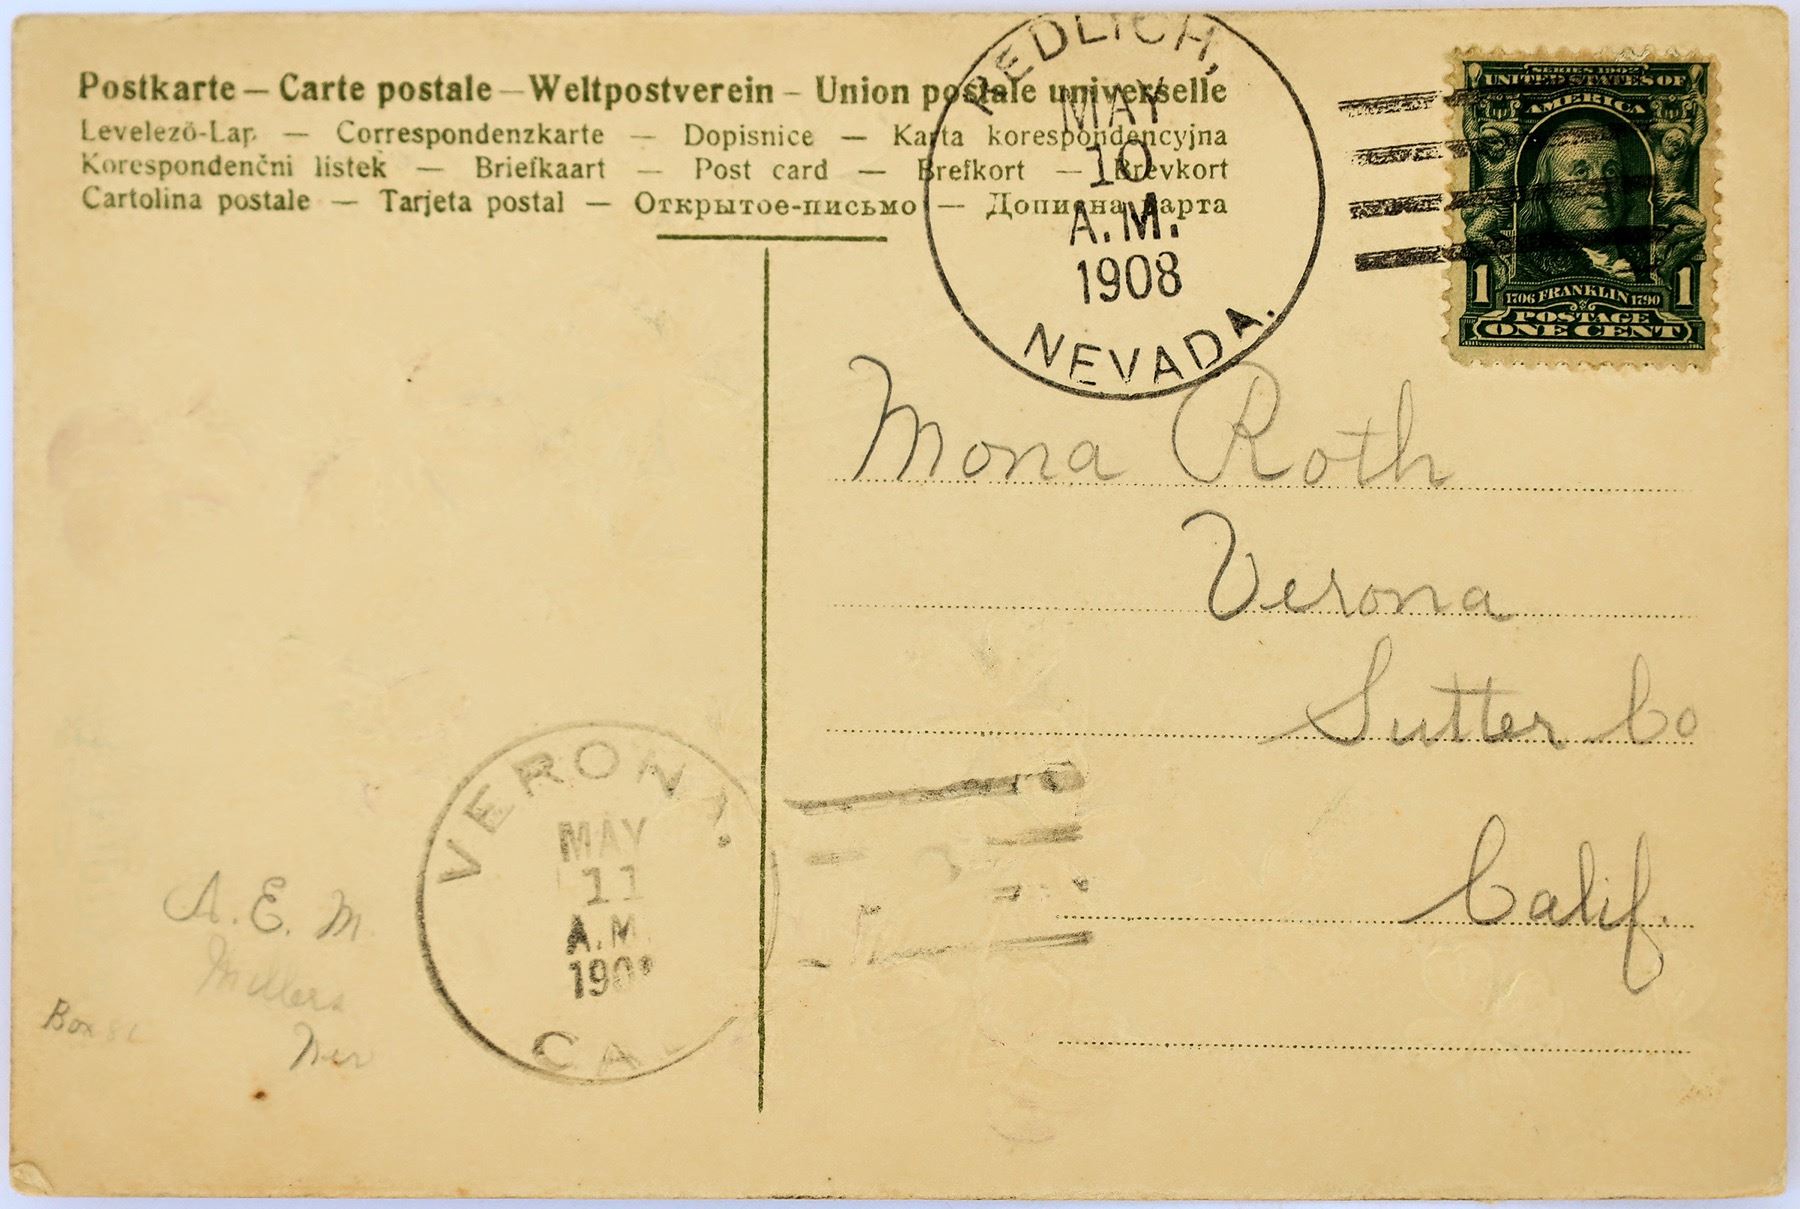 Postkarte – Carte postale – Weltpostverein – Union postale universelle
Levelező-Lap — Correspondenzkarte — Dopisnice — Karta korespondencyjna
Korespondenčni listek — Briefkaart — Post card — Brefkort — Brevkort
Cartolina postale — Tarjeta postal — Открытое-письмо — Дописна карта
REDLICH,
MAY
10
A.M.
1908
NEVADA.
SERIES 1902
UNITED STATES OF
AMERICA
1 1
1706 FRANKLIN 1790
POSTAGE
ONE CENT
Mona Roth
Verona
Sutter Co
Calif.
VERONA.
MAY
11
A.M.
1908
CAL
A. E. M.
Millers
Nev
Box